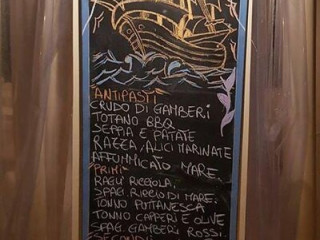 "ANTIPASTI"
CRUDO DI GAMBERI
TOTANO BBQ
SEPPIA E PATATE
RAZZA, ALICI MARINATE
AFFUMMICATO MARE.
"PRIMI"
RAGU' RICCIOLA.
SPAG. RICCIO DI MARE.
TONNO PUTTANESCA
TONNO CAPPERI E OLIVE
SPAG. GAMBERI ROSSI.
"SECONDI"